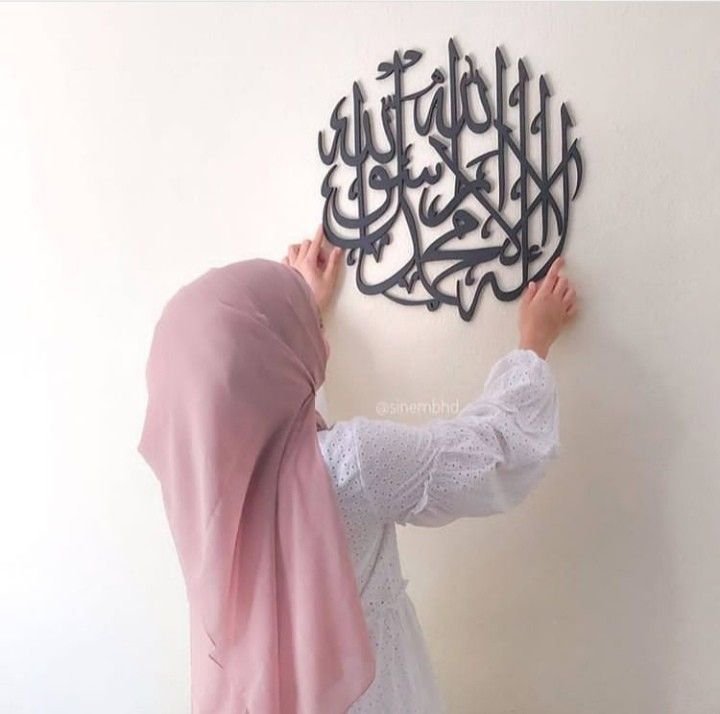 لا إله إلا الله محمد رسول الله
@sinembhd